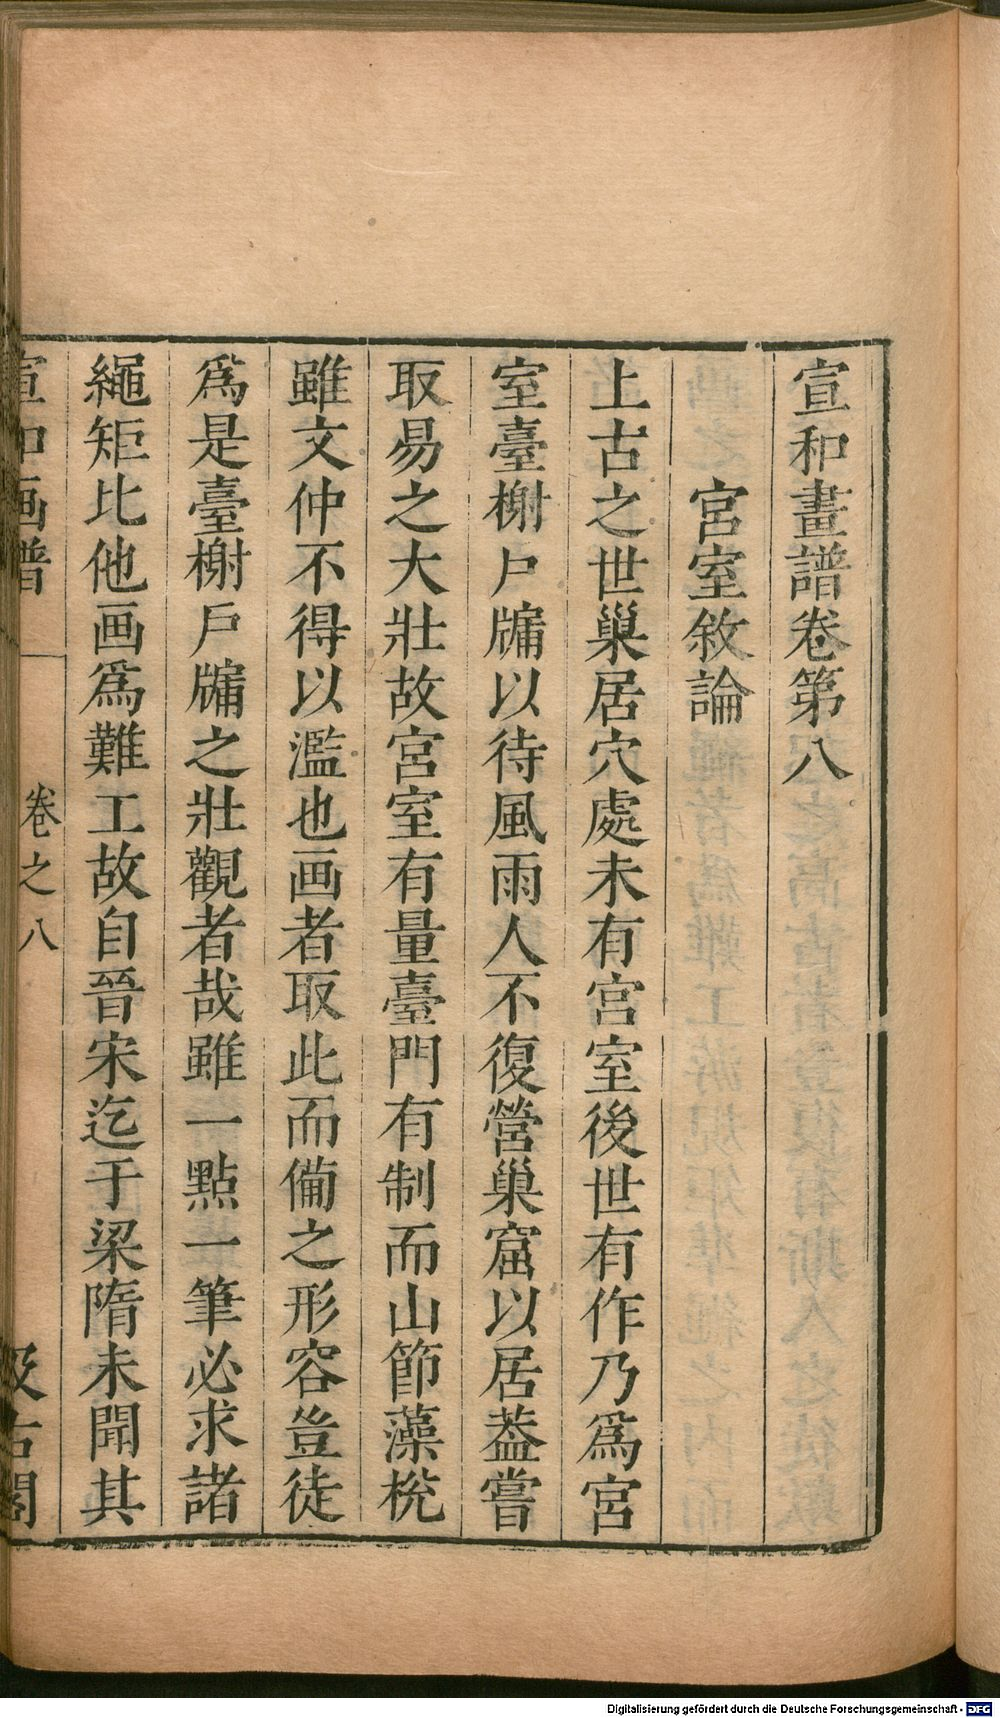 宣和畫譜卷第八
宮室敘論
上古之世巢居穴處未有宮室後世有作乃爲宮
室臺榭戶牖以待風雨人不復營巢窟以居葢嘗
取易之大壯故宮室有量臺門有制而山節藻梲
雖文仲不得以濫也画者取此而備之形容豈徒
爲是臺榭戶牖之壯觀者哉雖一點一筆必求諸
繩矩比他画爲難工故自晉宋迄于梁隋未聞其
宣和画譜 卷之八 汲古閣
Digitalisierung gefördert durch die Deutsche Forschungsgemeinschaft - DFG